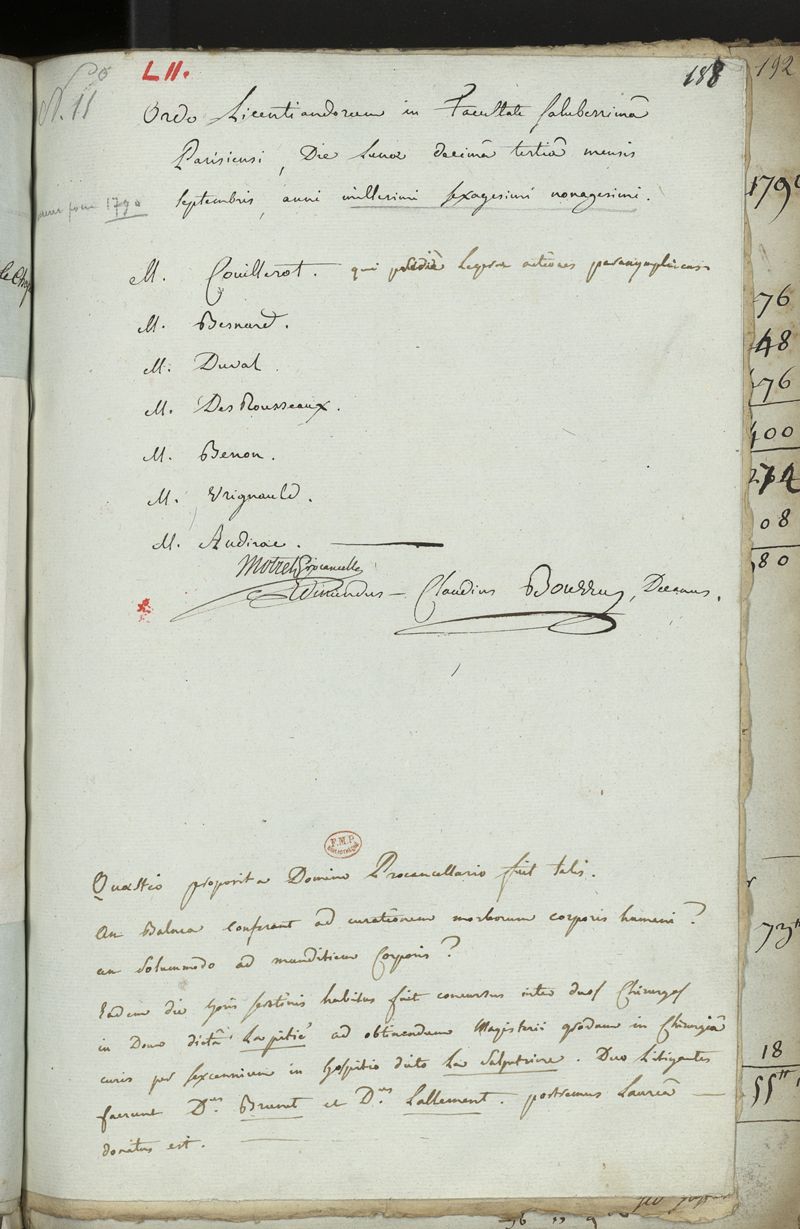 LII.
188
192
N. 11
Ordo Licentiandorum in Facultate saluberrimâ
Parisiensi, Die lunæ decimâ tertiâ mensis
septembris, anni millesimi sexagesimi nonagesimi.
pour 1790
M. Couillerot. qui pridiè legerat actiones paranymphicas
M. Besnard.
M. Duval
M. Des Rousseaux.
M. Benon.
M. Vrignauld.
M. Andirac.
Motret Procancell
Edmundus – Claudius Bourru, Decanus.
F.M.P.
Quæstio proposita Domino Procancellario fuit talis.
An Balnea conferant ad curationem morborum corporis humani?
an solummodo ad munditiem Corporis?
Eadem die horis habitus fuit concursus inter duos Chirurgos
in Domo dictâ La pitié ad obtinendum Magisterii gradum in Chirurgiâ
curis per sexennium in hospitio dicto La Salpetriere. Duo Litigantes
fuerunt Dnus Brunet et Dnus Lallement. postremus Laureâ
donatus est.
179
76
48
76
400
274
08
80
73
18
55